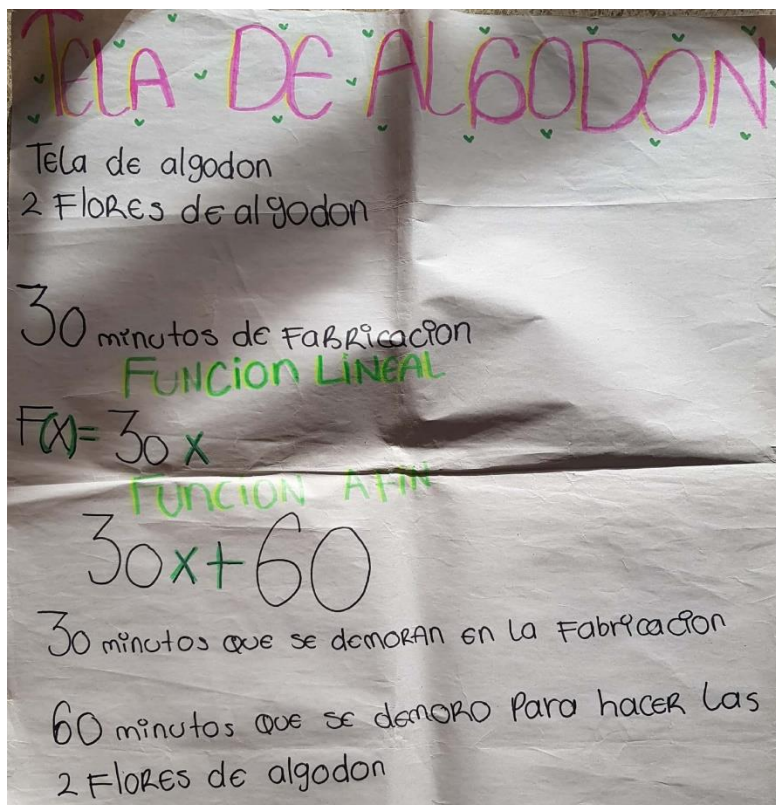 TELA DE ALGODON
Tela de algodon
2 Flores de algodon
30 minutos de Fabricacion
FUNCion LINEAL
F(x)= 30x
FUNCION AFIN
30x+60
30 minutos que se demoran en la Fabricacion
60 minutos que se demoro Para hacer las
2 Flores de algodon